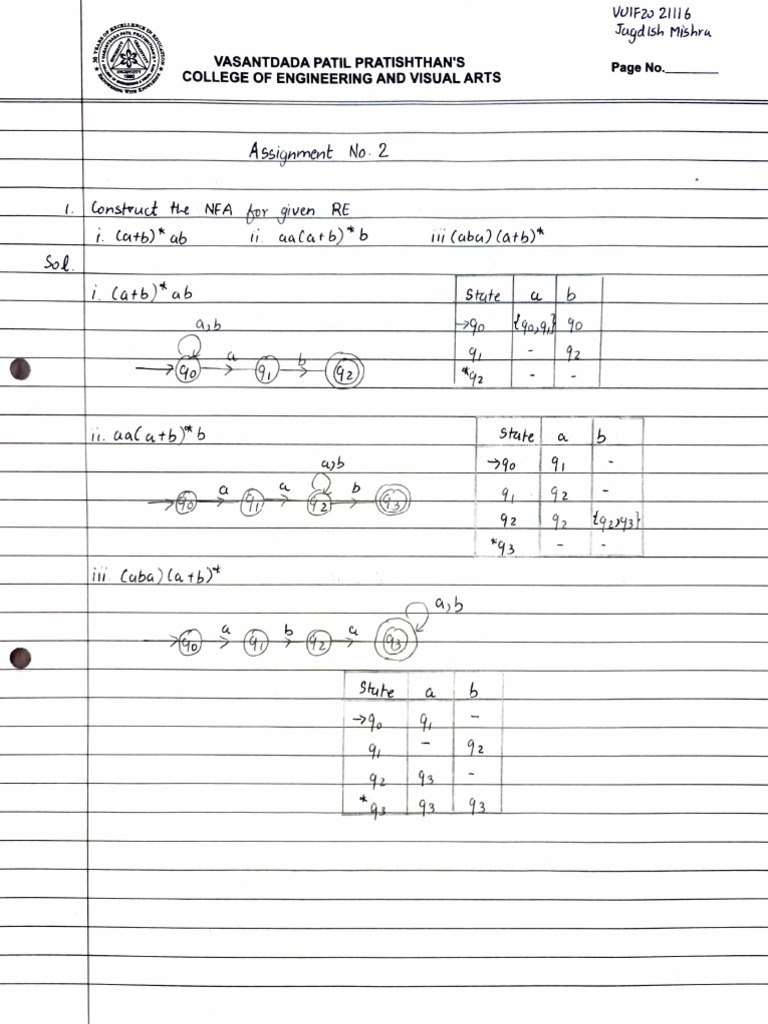 VU1F20 21116
Jagdish Mishra
VASANTDADA PATIL PRATISHTHAN'S
COLLEGE OF ENGINEERING AND VISUAL ARTS
Page No.________
Assignment No. 2
1. Construct the NFA for given RE
i. (a+b)* ab ii. aa(a+b)* b iii (aba) (a+b)*
Sol.
i. (a+b)* ab
State a b
→q0 {q0,q1} q0
q1 - q2
*q2 - -
a,b
q0 a q1 b q2
ii. aa(a+b)* b
State a b
→q0 q1 -
q1 q2 -
q2 q2 {q2,q3}
*q3 - -
a,b
q0 a q1 a q2 b q3
iii (aba) (a+b)*
a,b
q0 a q1 b q2 a q3
State a b
→q0 q1 -
q1 - q2
q2 q3 -
*q3 q3 q3